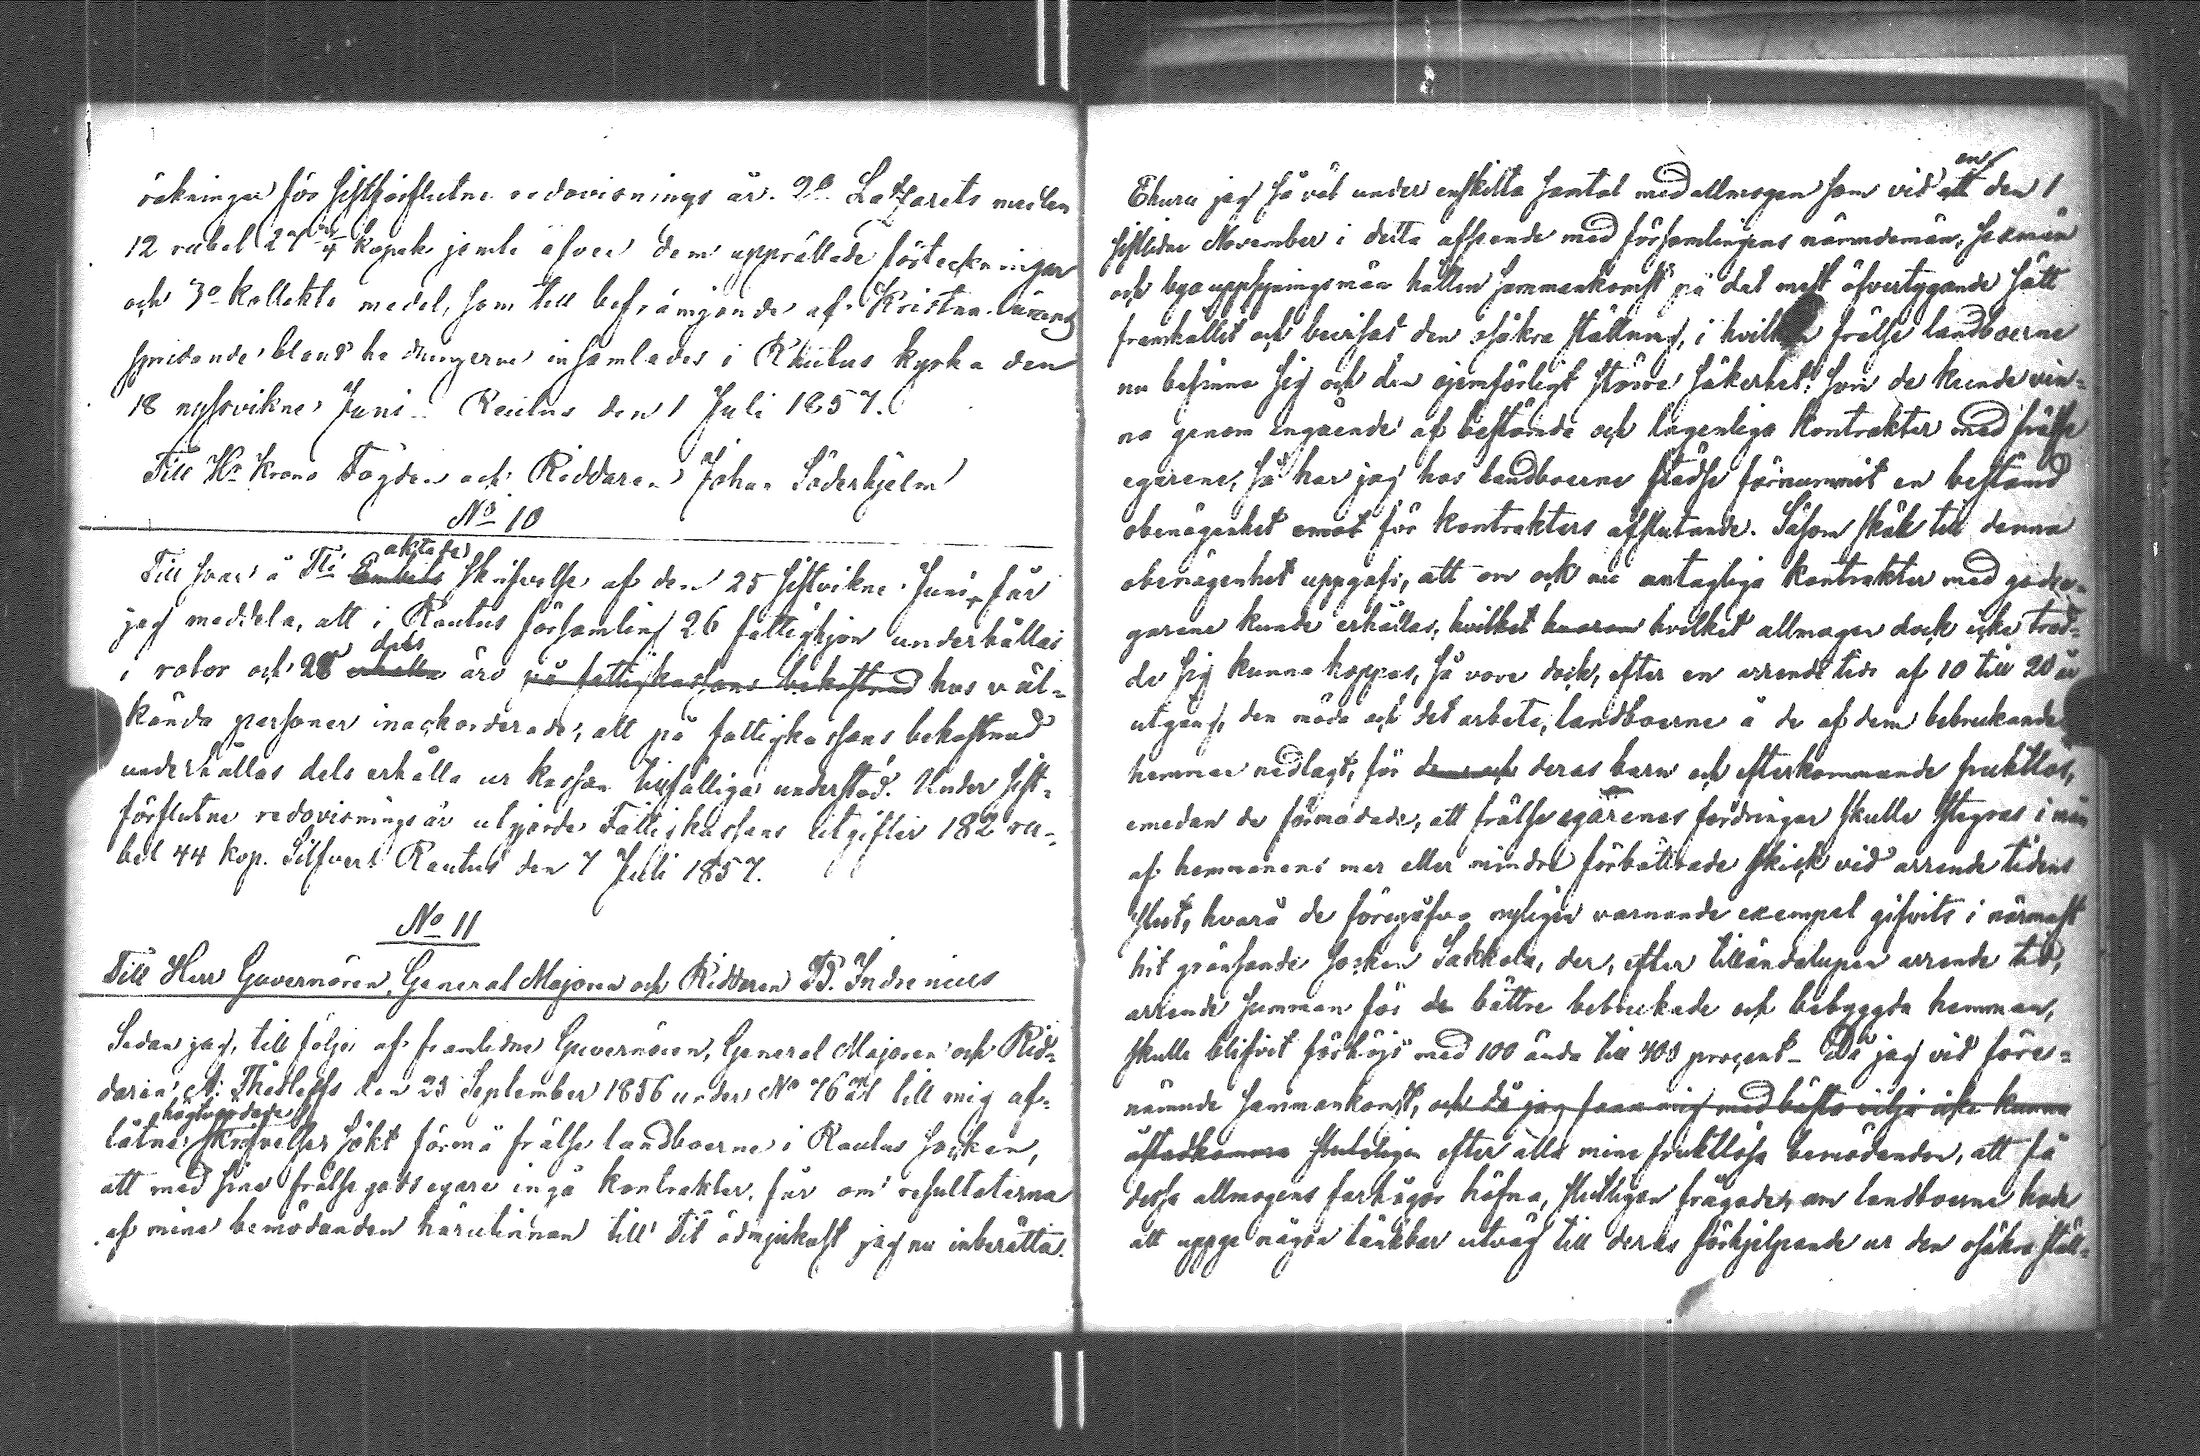 räkningar för sistförflutne redovisnings år. 2o Lazarets medlen
12 rubel 27 1/4 kopek jemte äfver dem upprättade förteckningar
och 3o kollekte medel, som till befrämjande af Kristna lärans
spridande bland hedningarne insamlades i Rautus kyrka den
18 nyssvikne Juni. Rautus den 1 Juli 1857.
Till Hr Krono Fogden och Riddaren Johan Söderhjelm
No 10
aktade
Till svar å Tit Embets skrifvelse af den 25 sistvikne Juni får
jag meddela, att i Rautus församling 26 fattighjon underhållas
dels
i rotor och 28 erhålla äro på fattigkassans bekostnad hos väl-
kända personer inackorderade, att på fattigkassans bekostnad
underhållas dels erhålla ur kassan tillfälliga understöd. Under sist-
förflutne redovisningsår utgjorde Fattigkassans utgifter 182 ru-
bel 44 kop. Silfver. Rautus den 7 Juli 1857.
No 11
Till Herr Guvernören, General Majoren och Riddaren B. Indrenius
Sedan jag, till följe af framledne Guvernören, General Majoren och Rid-
daren A. Thesleffs den 23 September 1856 under No 76 till mig af-
högtvördade
låtne skrifvelse, sökt förmå frälse landboerne i Rautus socken,
att med sine frälse godsegare ingå kontrakter, får om resultaterna
af mina bemödanden härutinnan till Tit ödmjukast jag nu inberätta.
en
Ehuru jag så väl under enskilta samtal med allmogen som vid ett den 1
sistlidne November i detta afseende med församlingens nämndemän, sexmän
och byauppsyningsmän hållen sammankomst på det mest öfvertygande sätt
framhållit och bevisat den osäkra ställning, i hvilken frälse landboerne
nu befinna sig och den ojemförligt större säkerhet, som de kunde vin-
na genom ingående af bestämde och lagenliga kontrakter med frälse
egarene, så har jag hos landboerne städse förnummit en bestämd
obenägenhet emot för kontrakters afslutande. Såsom skäl till denna
obenägenhet uppgafs, att om ock nu antagliga kontrakter med godse-
garene kunde erhållas, hvilket hvarom hvilket allmogen dock icke trod-
de sig kunna hoppas, så vore dock, efter en arrende tids af 10 till 20 år
utgång, den möda och det arbete, landboerne å de af dem bebrukande
hemman nedlagt, för dem och deras barn och efterkommande fruktlös,
emedan de förmodade, att frälse egarenes fordringar skulle stegras i mån
af hemmanens mer eller mindre förbättrade skick vid arrende tidens
slut, hvarå de föregåfvo nyligen varnande exempel gifvits i närmast
hit gränsande socken Sakkola, der, efter tilländalupen arrende tid,
arrende summan för de bättre bebrukade och bebyggda hemman,
skulle blifvit förhöjd med 100 ända till 400 procent. Då jag vid före-
nämnde sammankomst, och då jag fann mig med bästa vilja icke kunna
åstadkomma slutligen efter alla mina fruktlösa bemödanden, att få
dessa allmogens farhågor häfna, slutligen frågade, om landboerne hade
att uppge någon tänkbar utväg till deras förhjelpande ur den osäkra ställ-